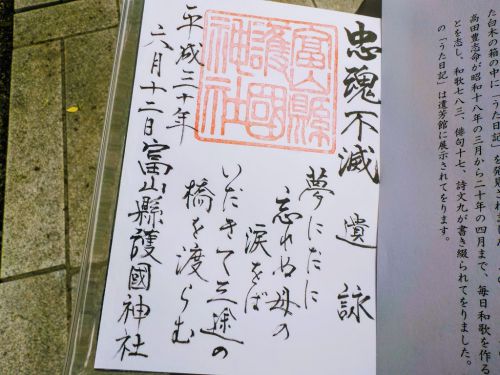 た白木の箱の中に「うた日記」
高田豊志命が昭和十八年の三月から二十年の四月まで、毎日和歌を作る
とを志し、和歌七八三、俳句十七、詩文九が書き綴られてをりました。
の「うた日記」は遺芳館に展示されてをります。
忠魂不滅 遺詠
夢にだに
忘れぬ母の
涙をば
いだきて三途の
橋を渡らむ
富山縣
護國
神社
平成三十年
六月十二日 富山縣護國神社